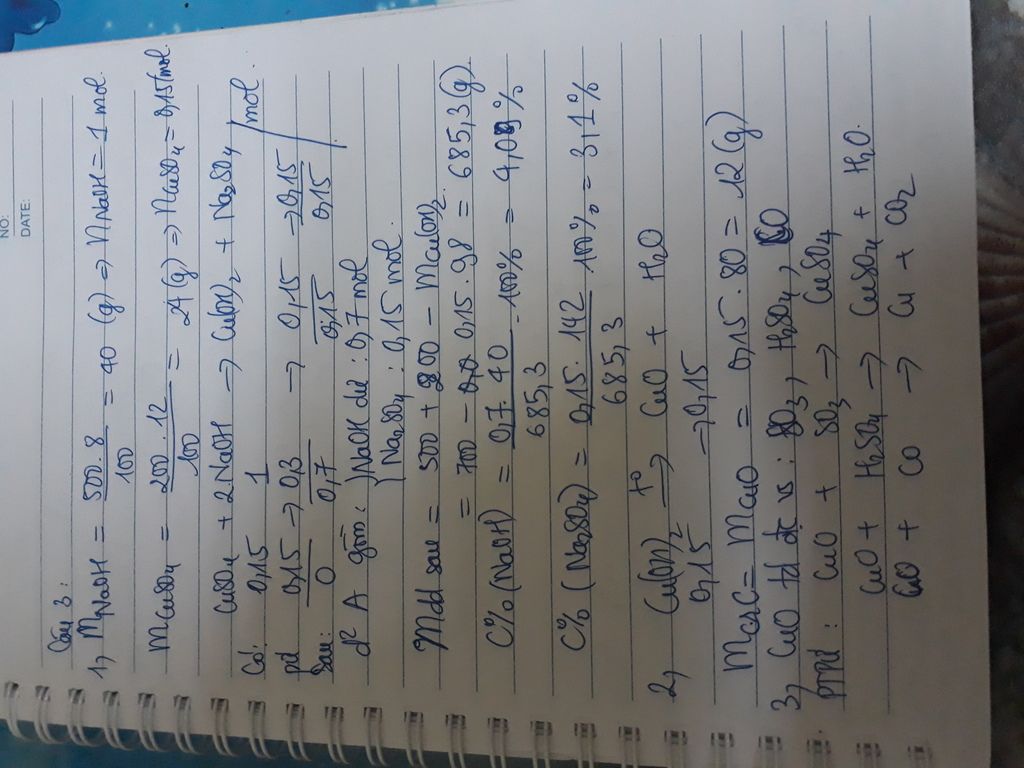 NO:
DATE:
Câu 3:
1, mNaOH = 500.8/100 = 40 (g) => nNaOH = 1 mol.
mCuSO4 = 200.12/100 = 24 (g) => nCuSO4 = 0,15 mol
CuSO4 + 2NaOH → Cu(OH)2 + Na2SO4
Có: 0,15 1 mol
pd 0,15 → 0,3 → 0,15 → 0,15
Sau: 0 0,7 0,15 0,15
d² A gồm: NaOH dư : 0,7 mol
Na2SO4 : 0,15 mol.
mdd sau = 500 + 200 - mCu(OH)2
= 700 - 0,15.98 = 685,3 (g)
C% (NaOH) = 0,7.40/685,3 .100% = 4,09%
C% (Na2SO4) = 0,15.142/685,3 100% = 3,1%
2, Cu(OH)2 t° → CuO + H2O
0,15 → 0,15
mcr = mCuO = 0,15.80 = 12 (g)
3, CuO td vs : SO3, H2SO4, CO
ptpd : CuO + SO3 → CuSO4
CuO + H2SO4 → CuSO4 + H2O.
CuO + CO → Cu + CO2